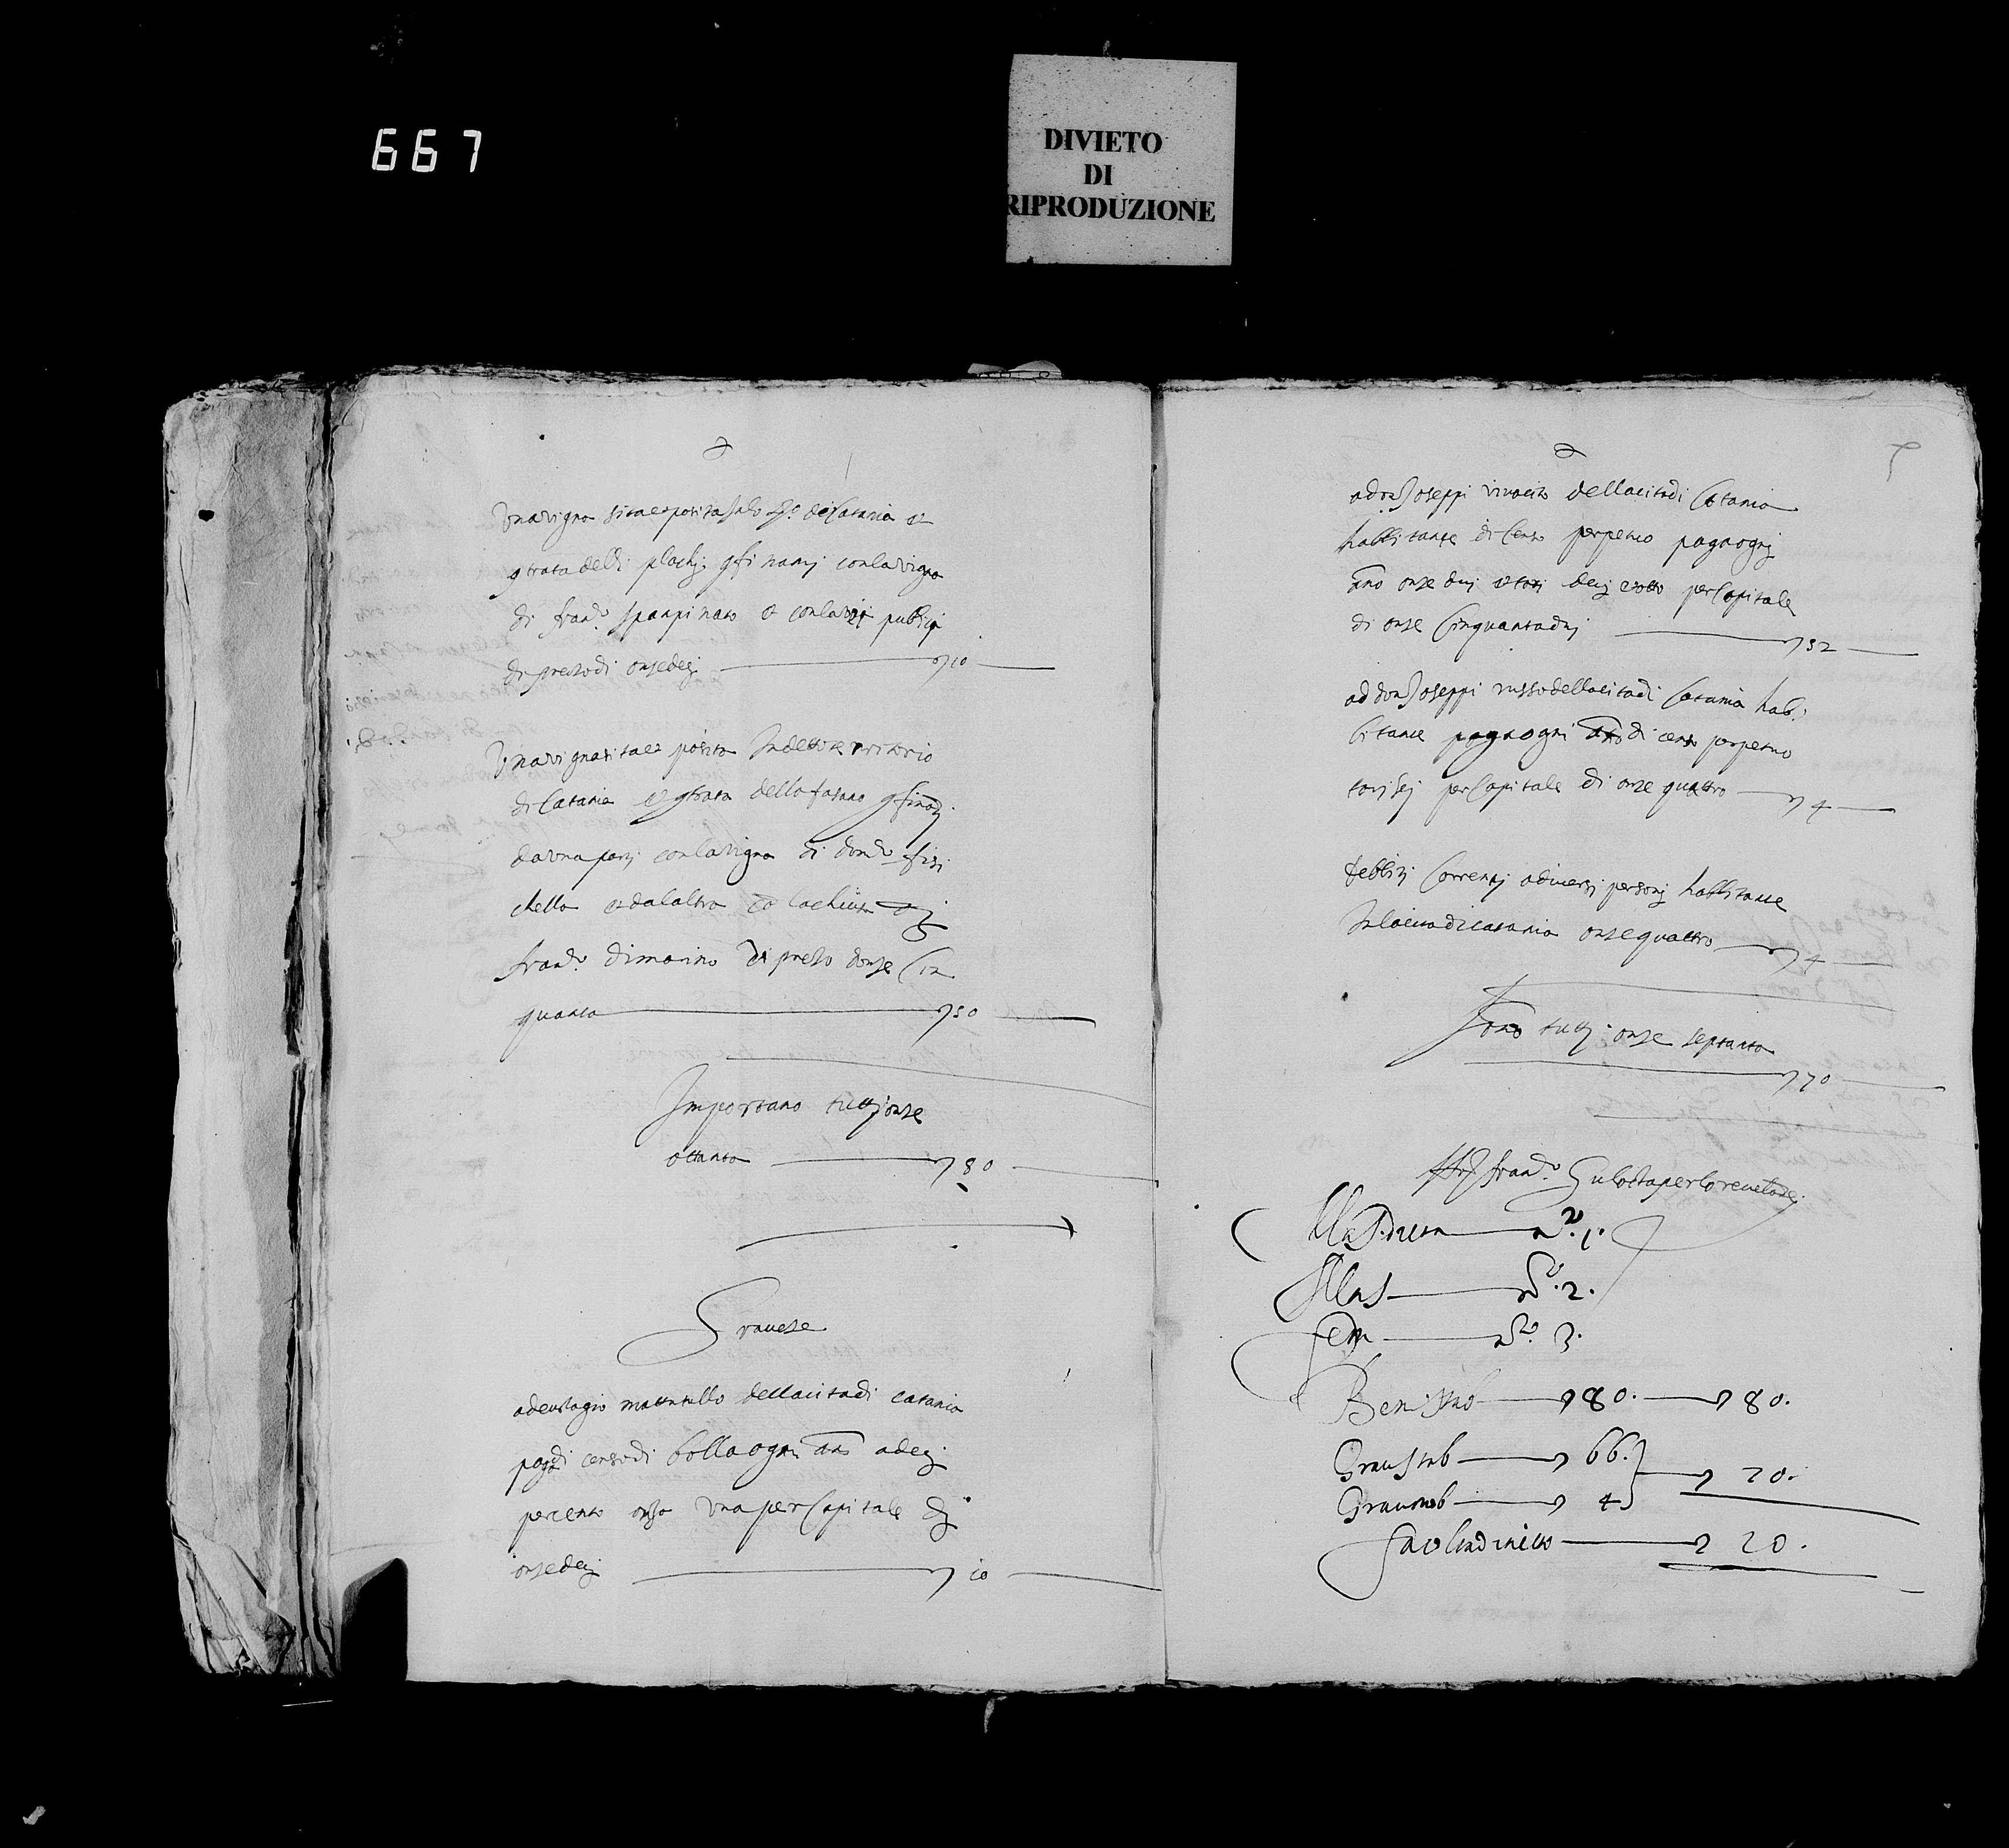 667
DIVIETO
DI
RIPRODUZIONE
Una vigna sita et posita di Catania et
contrata delli plachi confinanti con la vigna
di Franco spanpinato et con la via publica
di prezo di onse deci 10
Una vigna sita et posita In detto territorio
di Catania et contrata
da una parti con la vigna di fisi
chella et dal altra co la chiusa di
Franco di marino di prezo d onse Cin
quanta 50
Importano tutti onse
ottanta 80
Gravese
ad eustagio della cita di catania
paga di censo di bolla ogni anno a deci
per cento onsa una per Capitale di
onse deci 10
5
a don Joseppi della cita di Catania
habbitante di Censo perpetuo paga ogni
anno onse dui et tari deci et otto per Capitale
di onse Cinquantadui 52
ad don Joseppi russo della cita di Catania hab
bitante paga ogni anno di censo perpetuo
tari sei per Capitale di onse quattro 4
debbiti Correnti a diversi personi habbitante
In la cita di catania onse quattro 4
Sono tutti onse septanta
70
Franco Gulotta per lo revelo
n.o 1.
n.o 2.
fem n.o 3.
Beni stab 80. 80.
Grav stab 66.
70.
Grav mob 4
20.